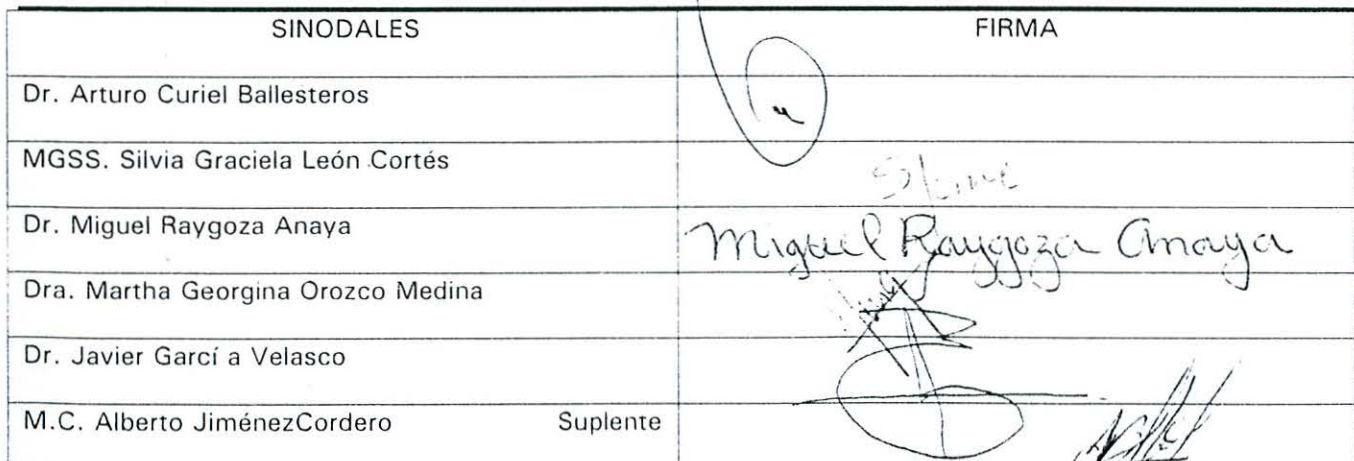 SINODALES FIRMA
Dr. Arturo Curiel Ballesteros
MGSS. Silvia Graciela León Cortés
Dr. Miguel Raygoza Anaya Miguel Raygoza Anaya
Dra. Martha Georgina Orozco Medina
Dr. Javier Garcí a Velasco
M.C. Alberto JiménezCordero Suplente